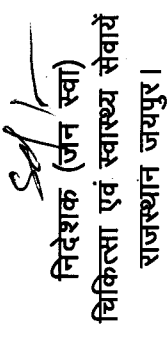 Sd/-
निदेशक (जन स्वा)
चिकित्सा एवं स्वास्थ्य सेवायें
राजस्थान जयपुर।